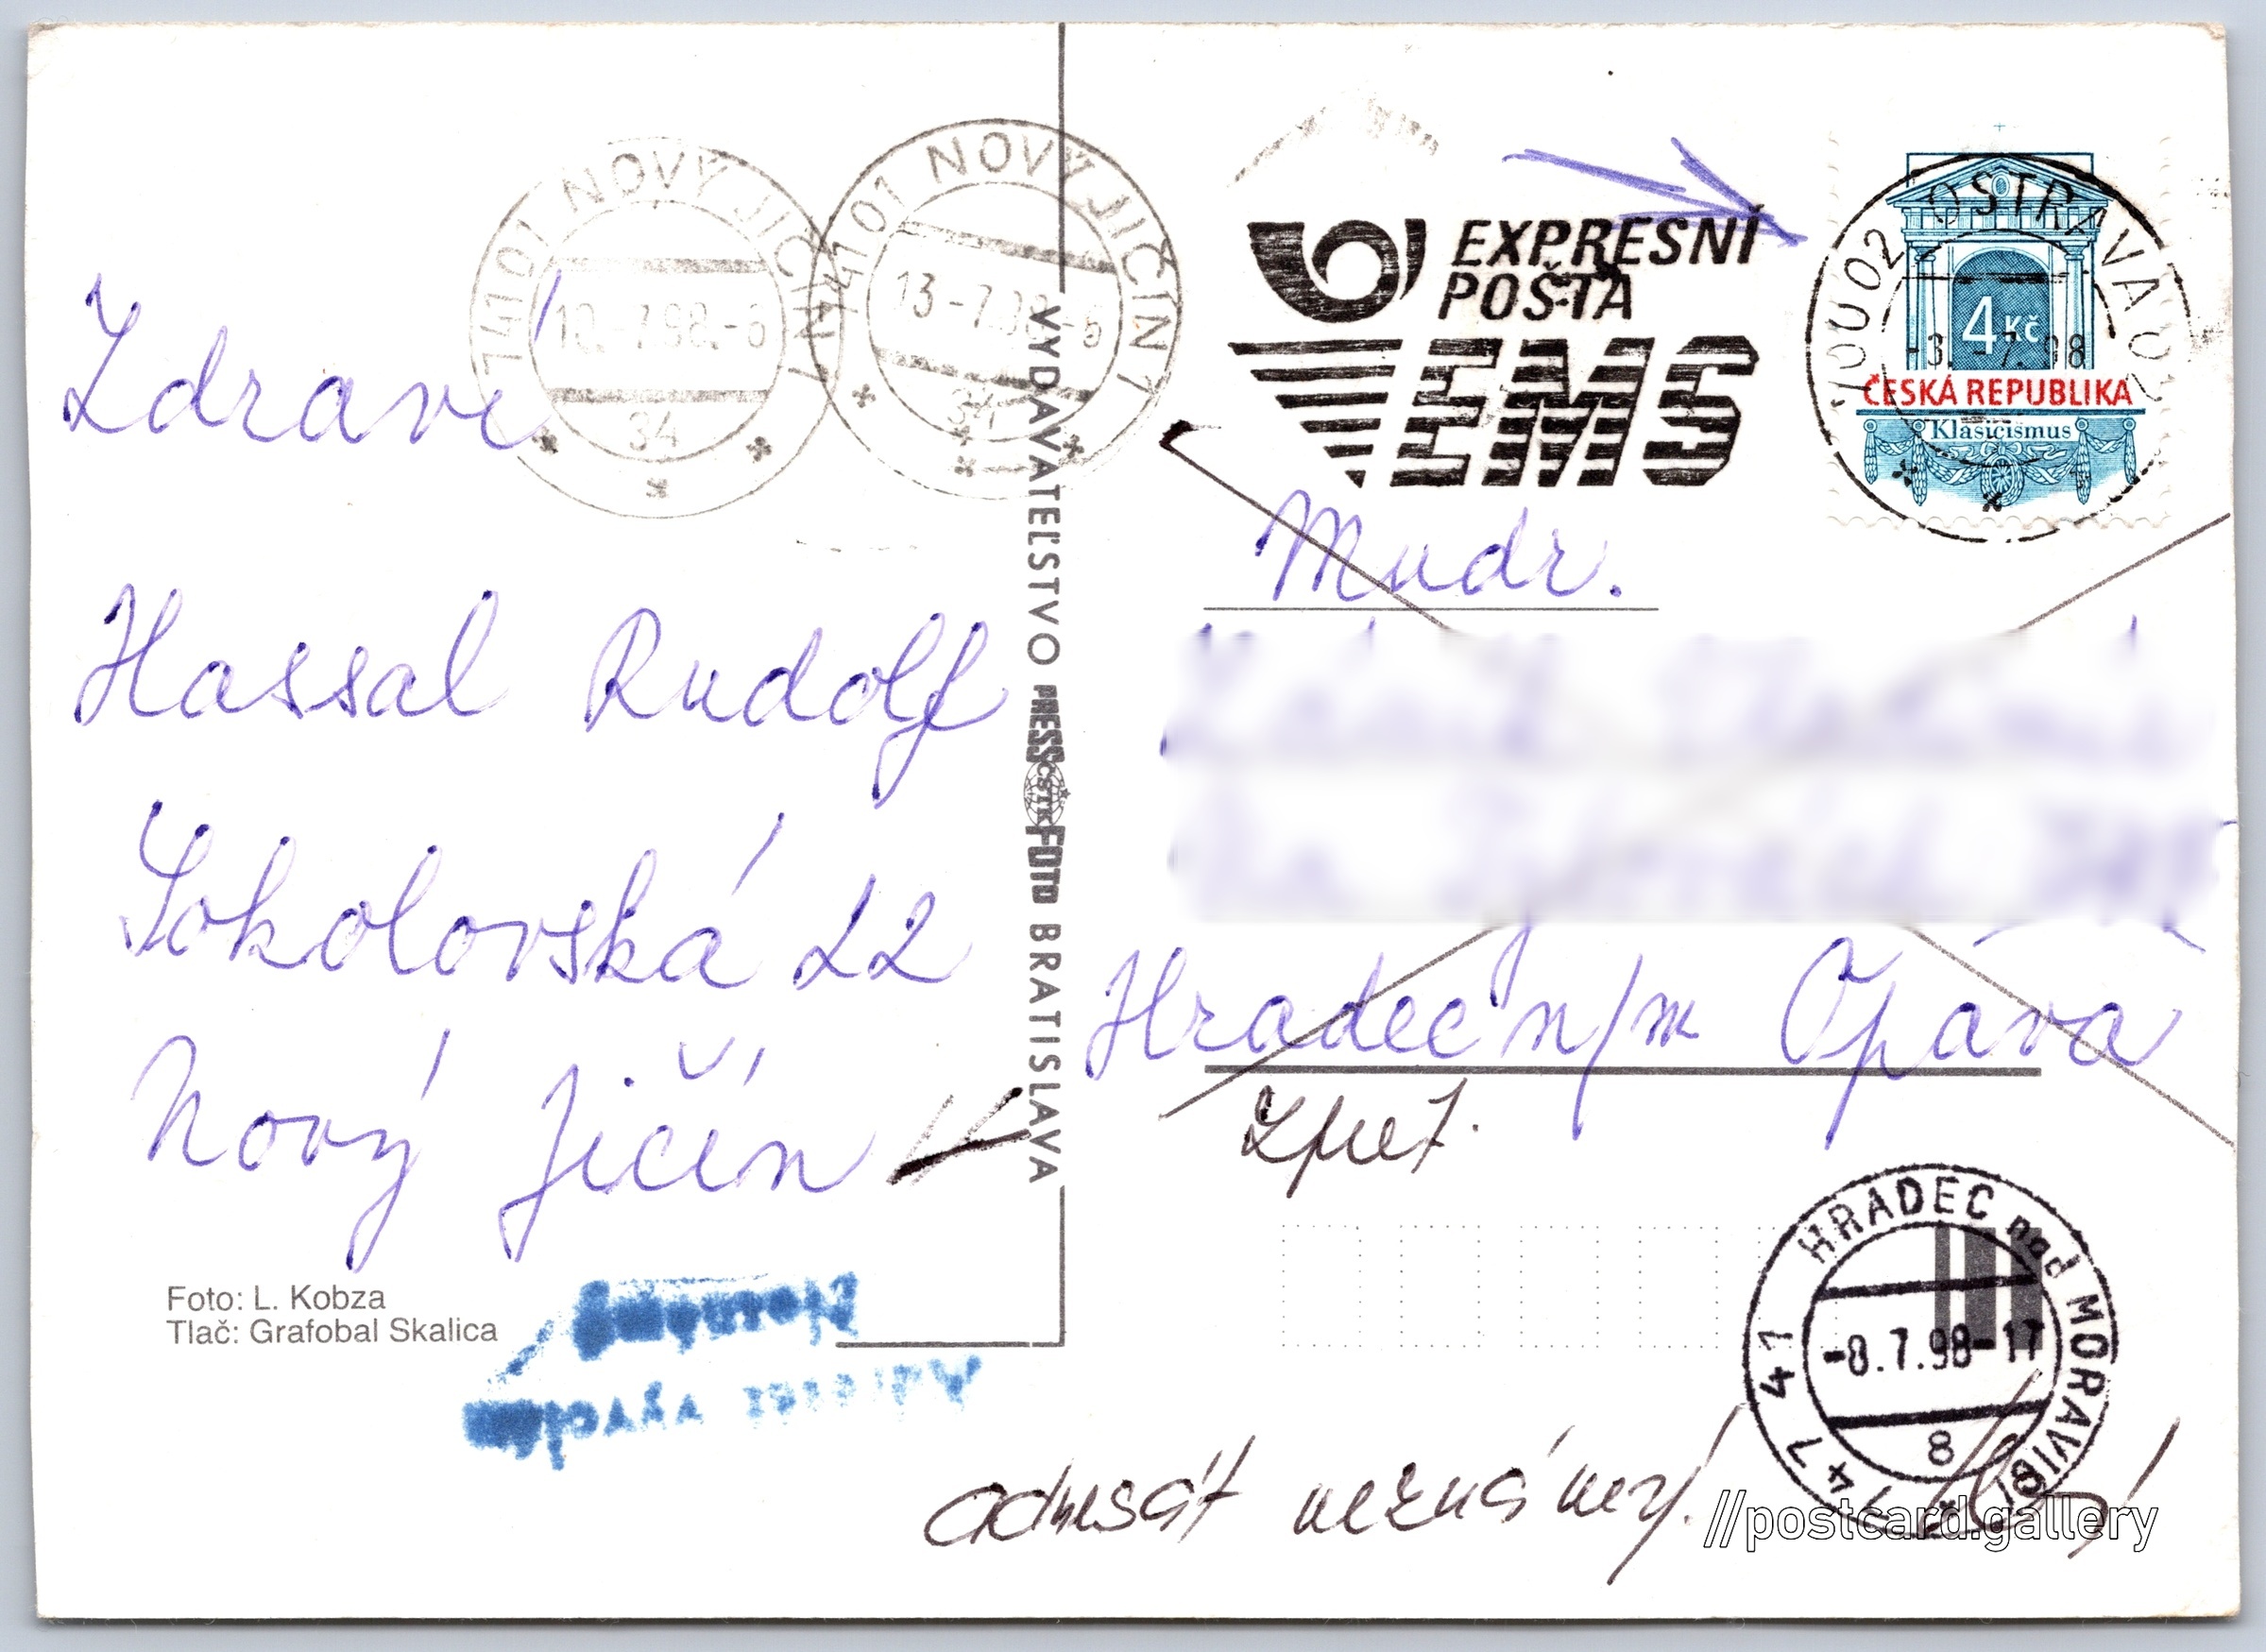 Zdraví
Hassal Rudolf
Sokolovská 22
Nový Jičín
Foto: L. Kobza
Tlač: Grafobal Skalica
741 01 NOVÝ JIČÍN 1
10.-7.98.-6
34
741 01 NOVÝ JIČÍN 1
13.-7.98.-6
34
VYDAVATEĽSTVO PRESSFOTO BRATISLAVA
ČSTK
EXPRESNÍ
POŠTA
EMS
OSTRAVA 02
-3.-7.98
4 Kč
ČESKÁ REPUBLIKA
Klasicismus
Mudr.
Hradec n/m Opava
zpet.
HRADEC nad MORAVICÍ
747 41
-8.7.98-17
8
Adresát
neznámý
adresát neznámý.
//postcard.gallery